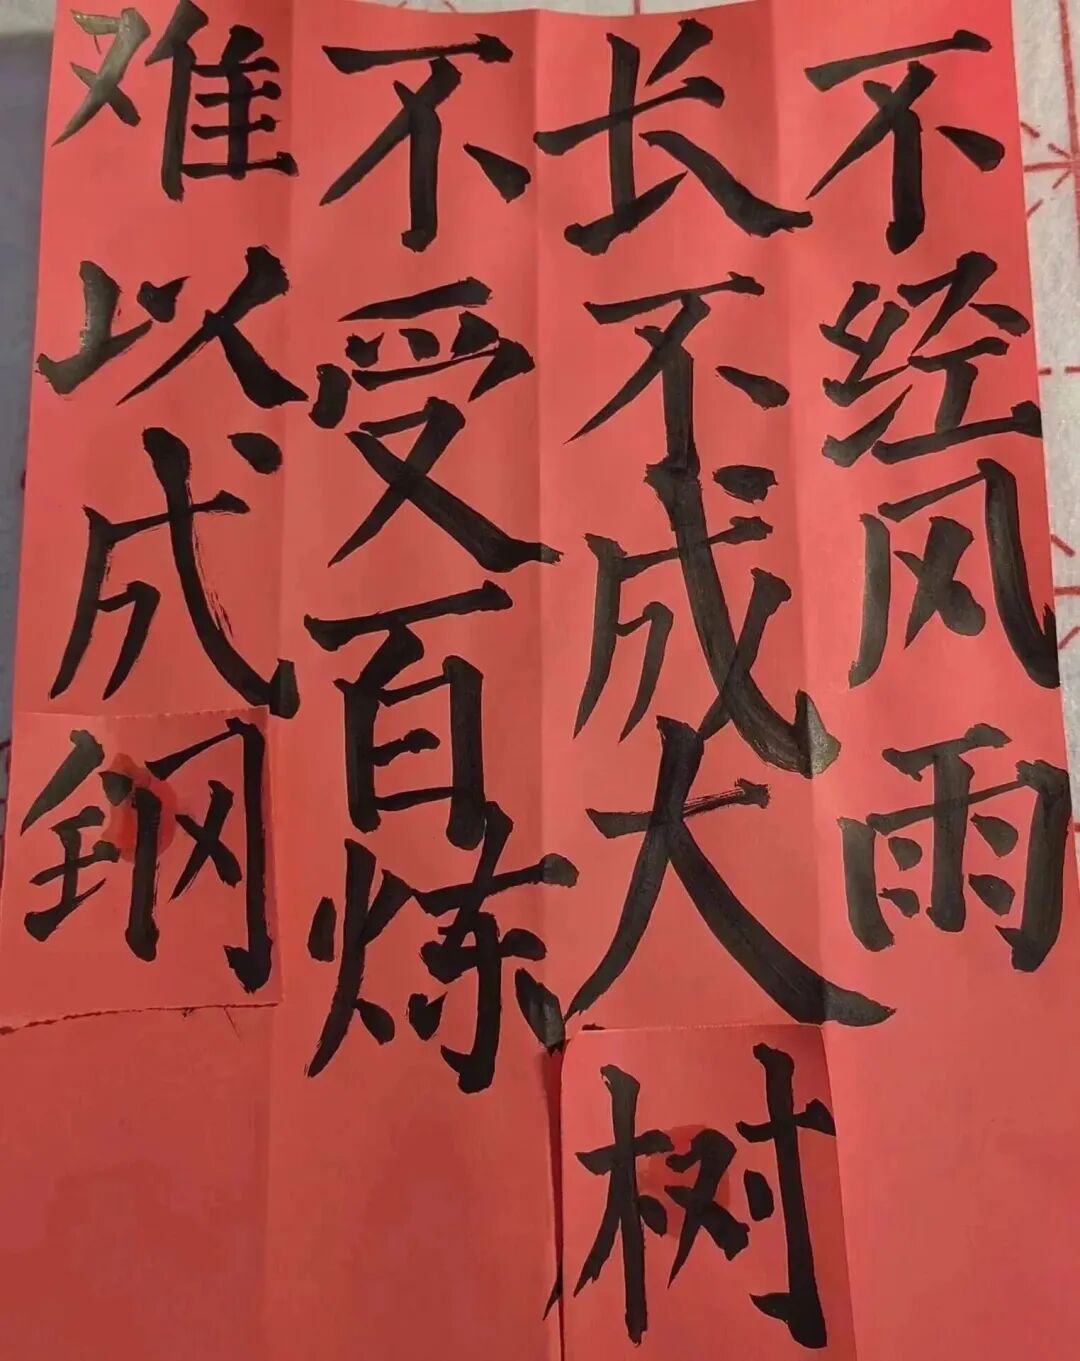 不经风雨
长不成大树
不受百炼
难以成钢